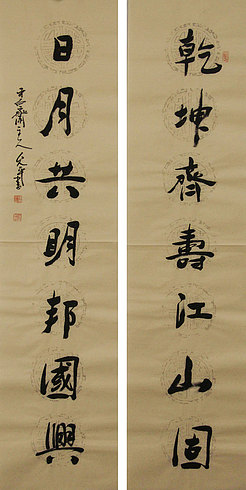 乾坤齊壽江山固
日月共明邦國興